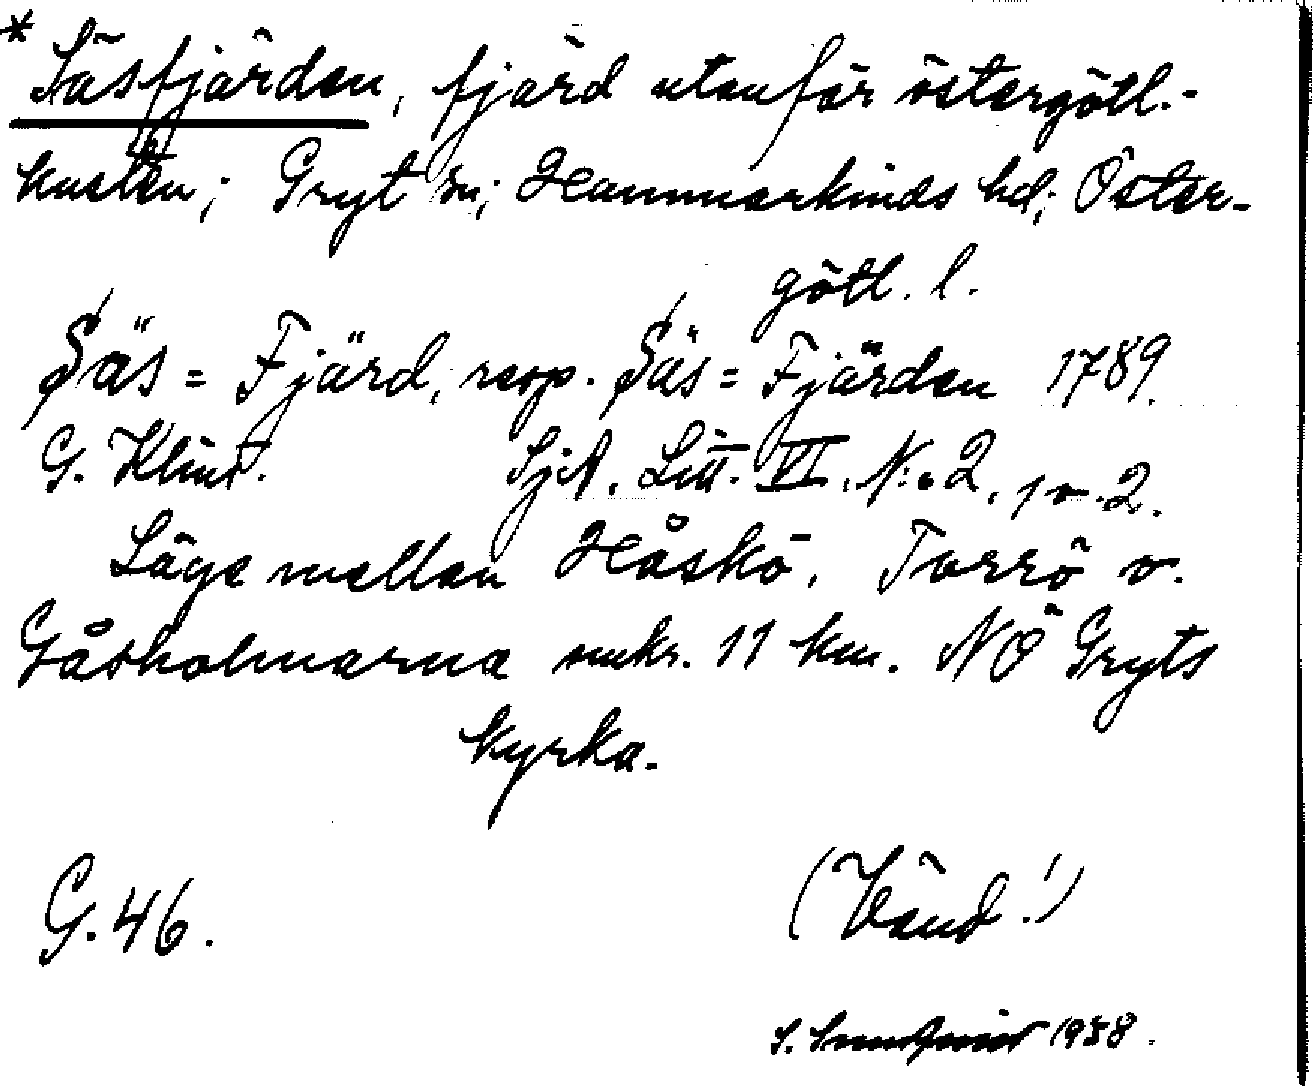 * Säsfjärden, fjärd utanför östergötl.-
kusten; Gryt sn; Hammarkinds hd; Öster-
götl. l.
Säs = Fjärd, resp. Säs = Fjärden 1789.
G. Klint. SjA. Litt. VI. N:o 2, 1 o. 2.
Läge mellan Håskö, Torrö o.
Gåsholmarna omkr. 11 km. NÖ Gryts
kyrka.
G. 46.
(Vänd!)
S. 1958.